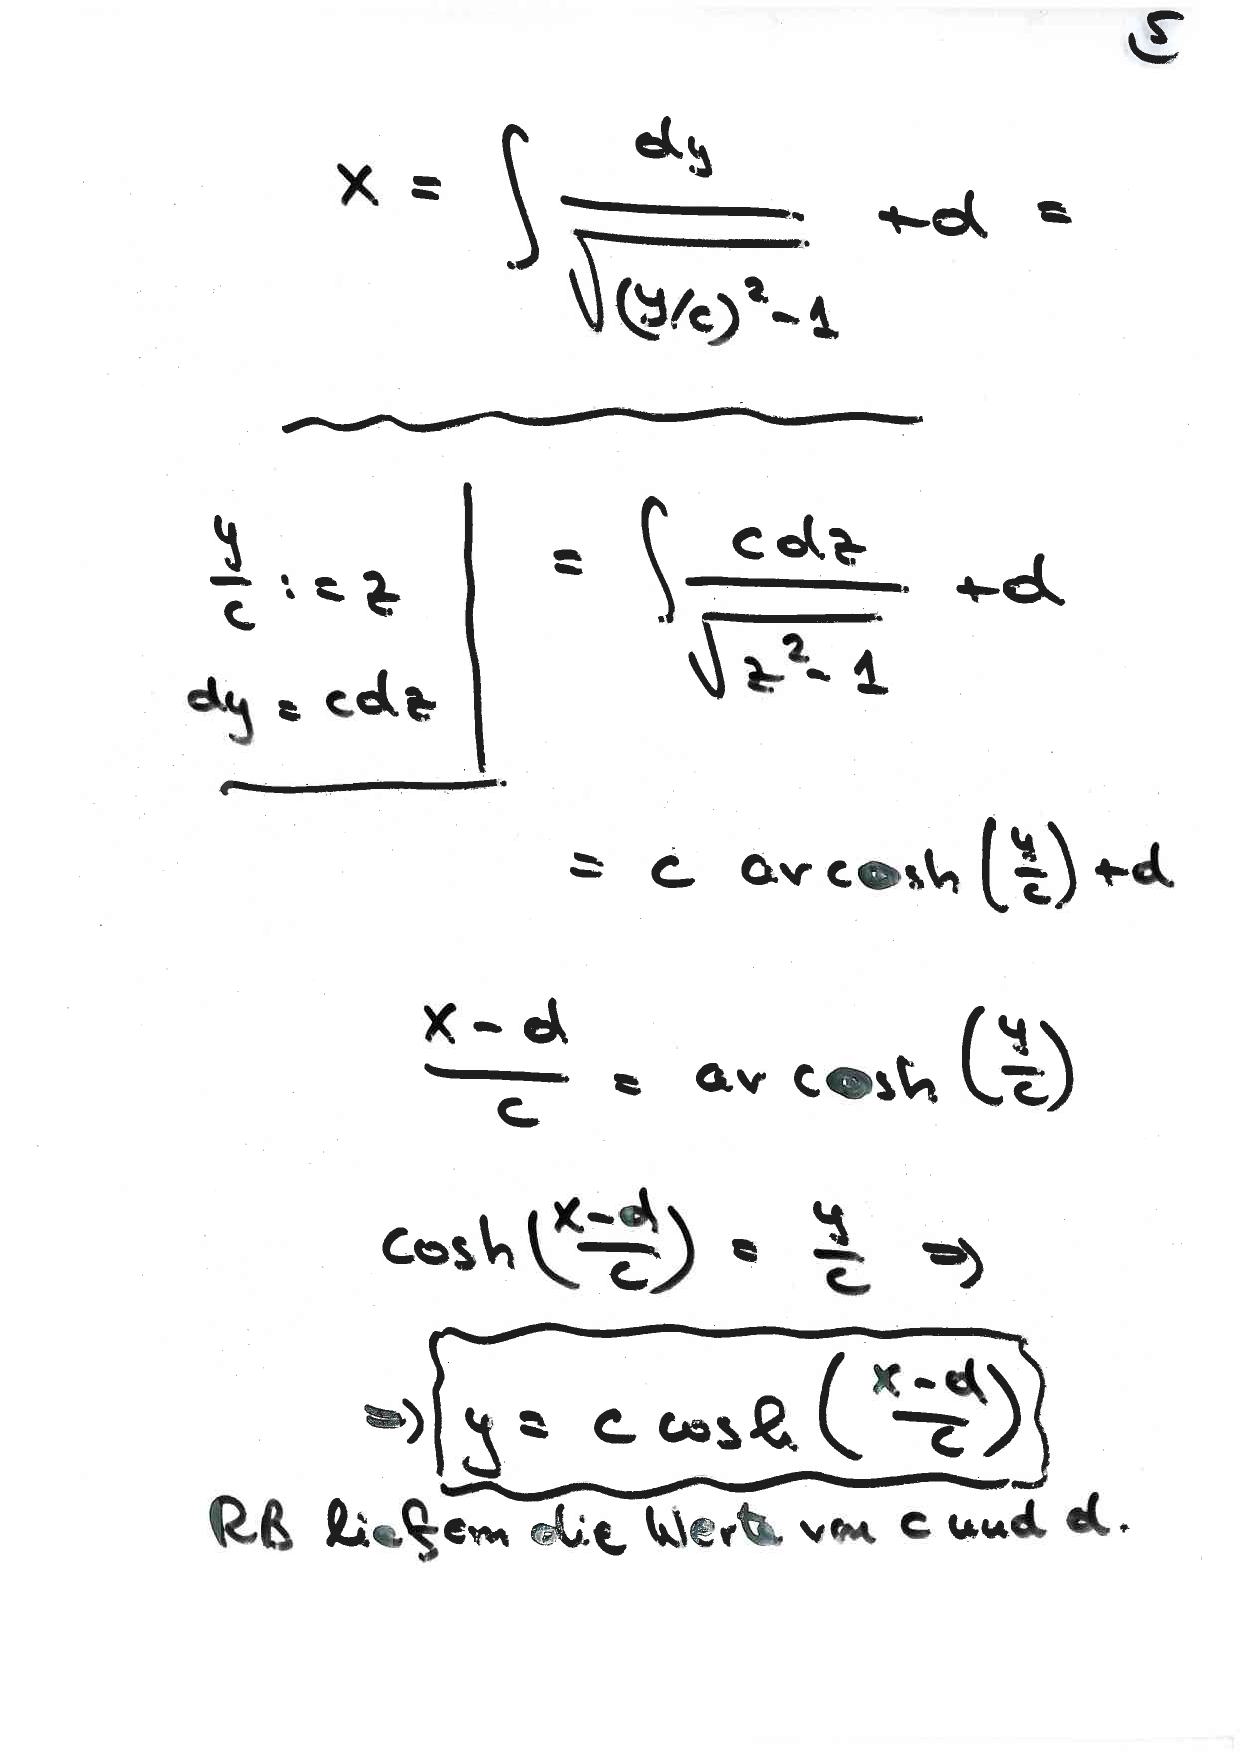 5
x = ∫ dy / √((y/c)² - 1) + d =
y/c := z
dy = c dz
= ∫ c dz / √(z² - 1) + d
= c arcosh (y/c) + d
(x - d)/c = arcosh (y/c)
cosh ((x - d)/c) = y/c ⇒
⇒ y = c cosh ((x - d)/c)
RB liefern die Werte von c und d.